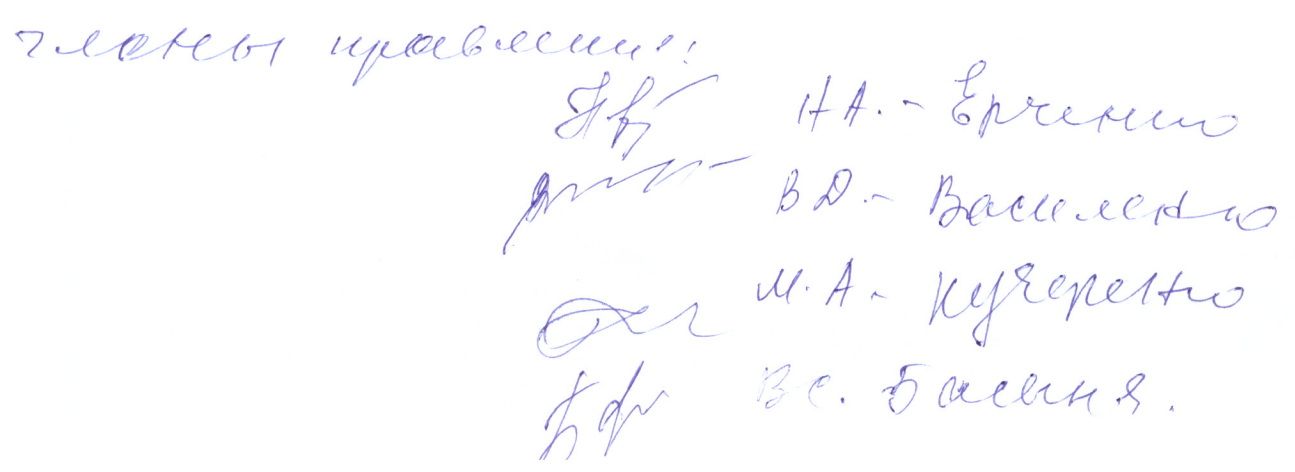 члены правления:
Н А. - Ерченко
В Д. - Василенко
М. А - Кучеренко
В С. Басыня.